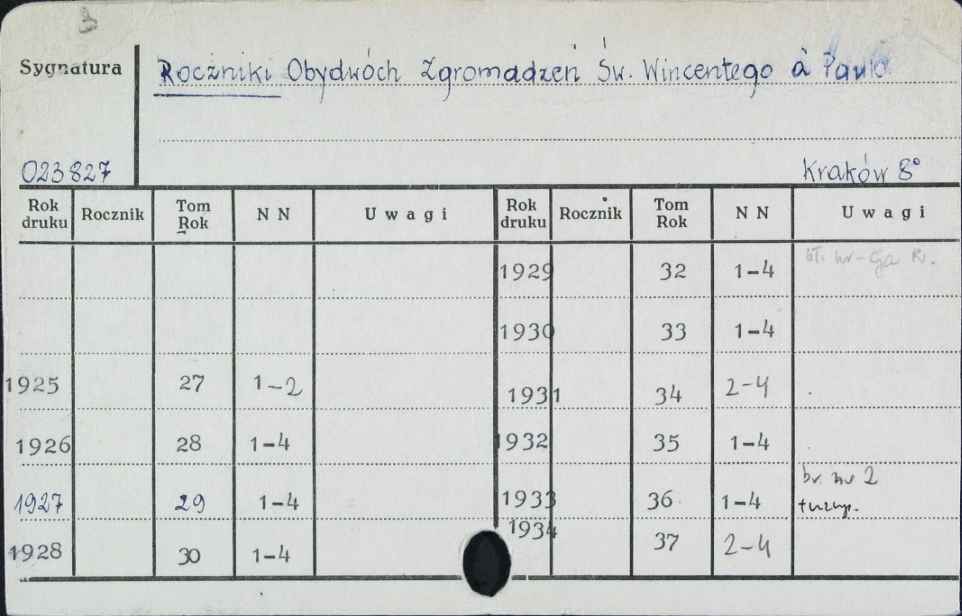 3
Sygnatura
Roczniki Obydwóch Zgromadzeń Św. Wincentego à Paulo
023827
Kraków 8°
Rok druku Rocznik Tom Rok N N Uwagi Rok druku Rocznik Tom Rok N N Uwagi
1929 32 1-4
1930 33 1-4
1925 27 1-2 1931 34 2-4
1926 28 1-4 1932 35 1-4
1927 29 1-4 1933 36 1-4 br. nr 2
1928 30 1-4 1934 37 2-4